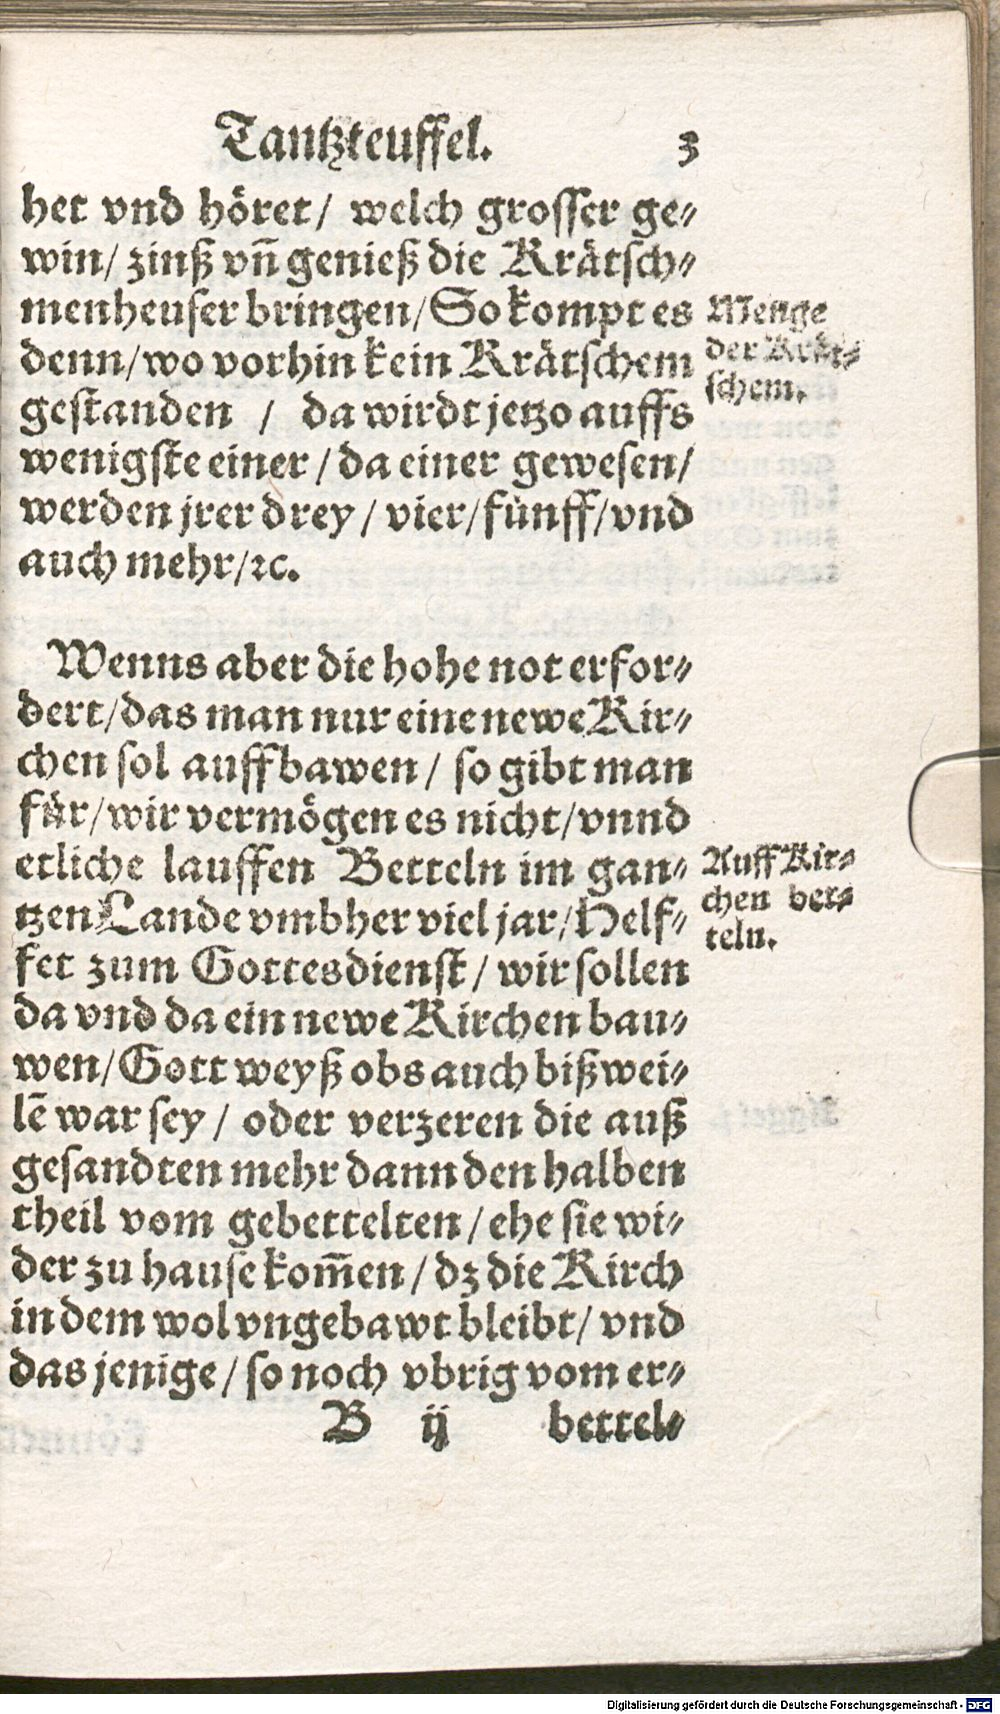 Tantzteuffel. 3
het vnd höret/ welch grosser ge-
win/ zinß vn̄ genieß die Krätsch-
menheuser bringen/ So kompt es
denn/ wo vorhin kein Krätschem
gestanden / da wirdt jetzo auffs
wenigste einer / da einer gewesen/
werden jrer drey / vier/ fünff/ vnd
auch mehr/ꝛc.
Menge
der Krät-
schem.
Wenns aber die hohe not erfor-
dert/ das man nur eine newe Kir-
chen sol auffbawen / so gibt man
für/ wir vermögen es nicht/ vnnd
etliche lauffen Betteln im gan-
tzen Lande vmbher viel jar/ Helf-
fet zum Gottesdienst / wir sollen
da vnd da ein newe Kirchen bau-
wen/ Gott weyß obs auch bißwei-
lē war sey / oder verzeren die auß
gesandten mehr dann den halben
theil vom gebettelten / ehe sie wi-
der zu hause kom̄en / dz die Kirch
in dem wol vngebawt bleibt/ vnd
das jenige / so noch vbrig vom er-
Auff Kir-
chen bet-
teln.
B ij bettel-
Digitalisierung gefördert durch die Deutsche Forschungsgemeinschaft - DFG